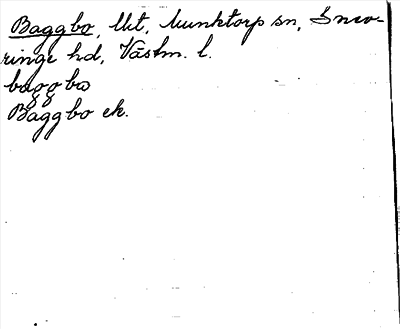 Baggbo, lht, Munktorp sn, Snev-
ringe hd, Västm. l.
baggbω
Baggbo ek.